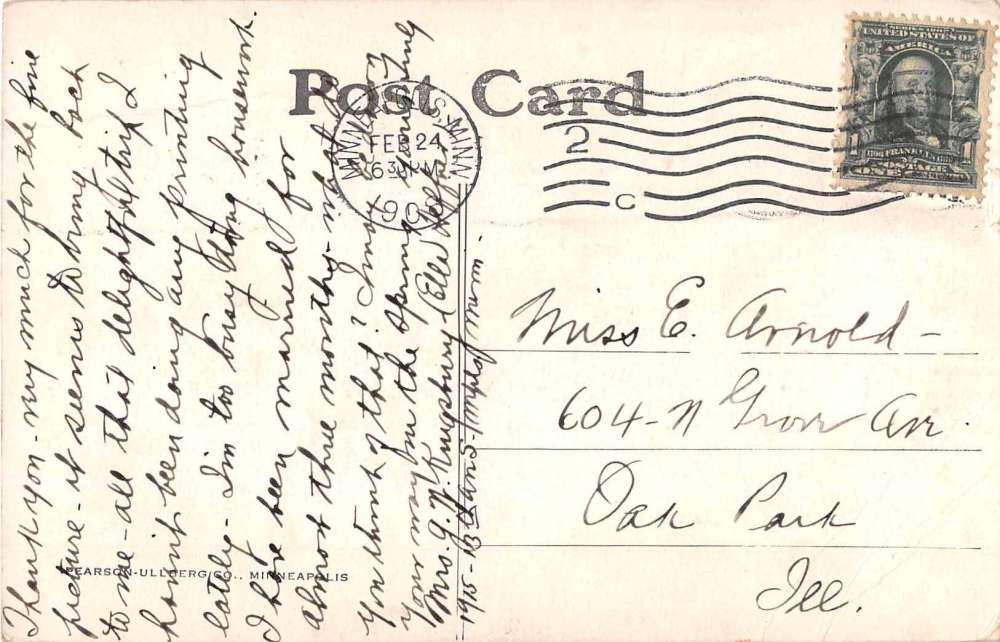 Post Card
MINN
FEB 24
630 PM
190
2
C
SERIES 1902
UNITED STATES OF
AMERICA
FRANKLIN
POSTAGE
ONE CENT
Thank you - very much for the fine
picture - it seems to bring back
to me - all that delightful trip I
haven't been doing any printing
lately - I'm too busy doing housework.
I have been married for
almost three months - what do
you think of that? I may
your way in the spring
Mrs. G. W. Kingsbury (Ele
1915 - 13 Ave S - Mpls, Minn.
Miss E. Arnold -
604 - N Grove Ave.
Oak Park
Ill.
PEARSON-ULLBERG CO., MINNEAPOLIS